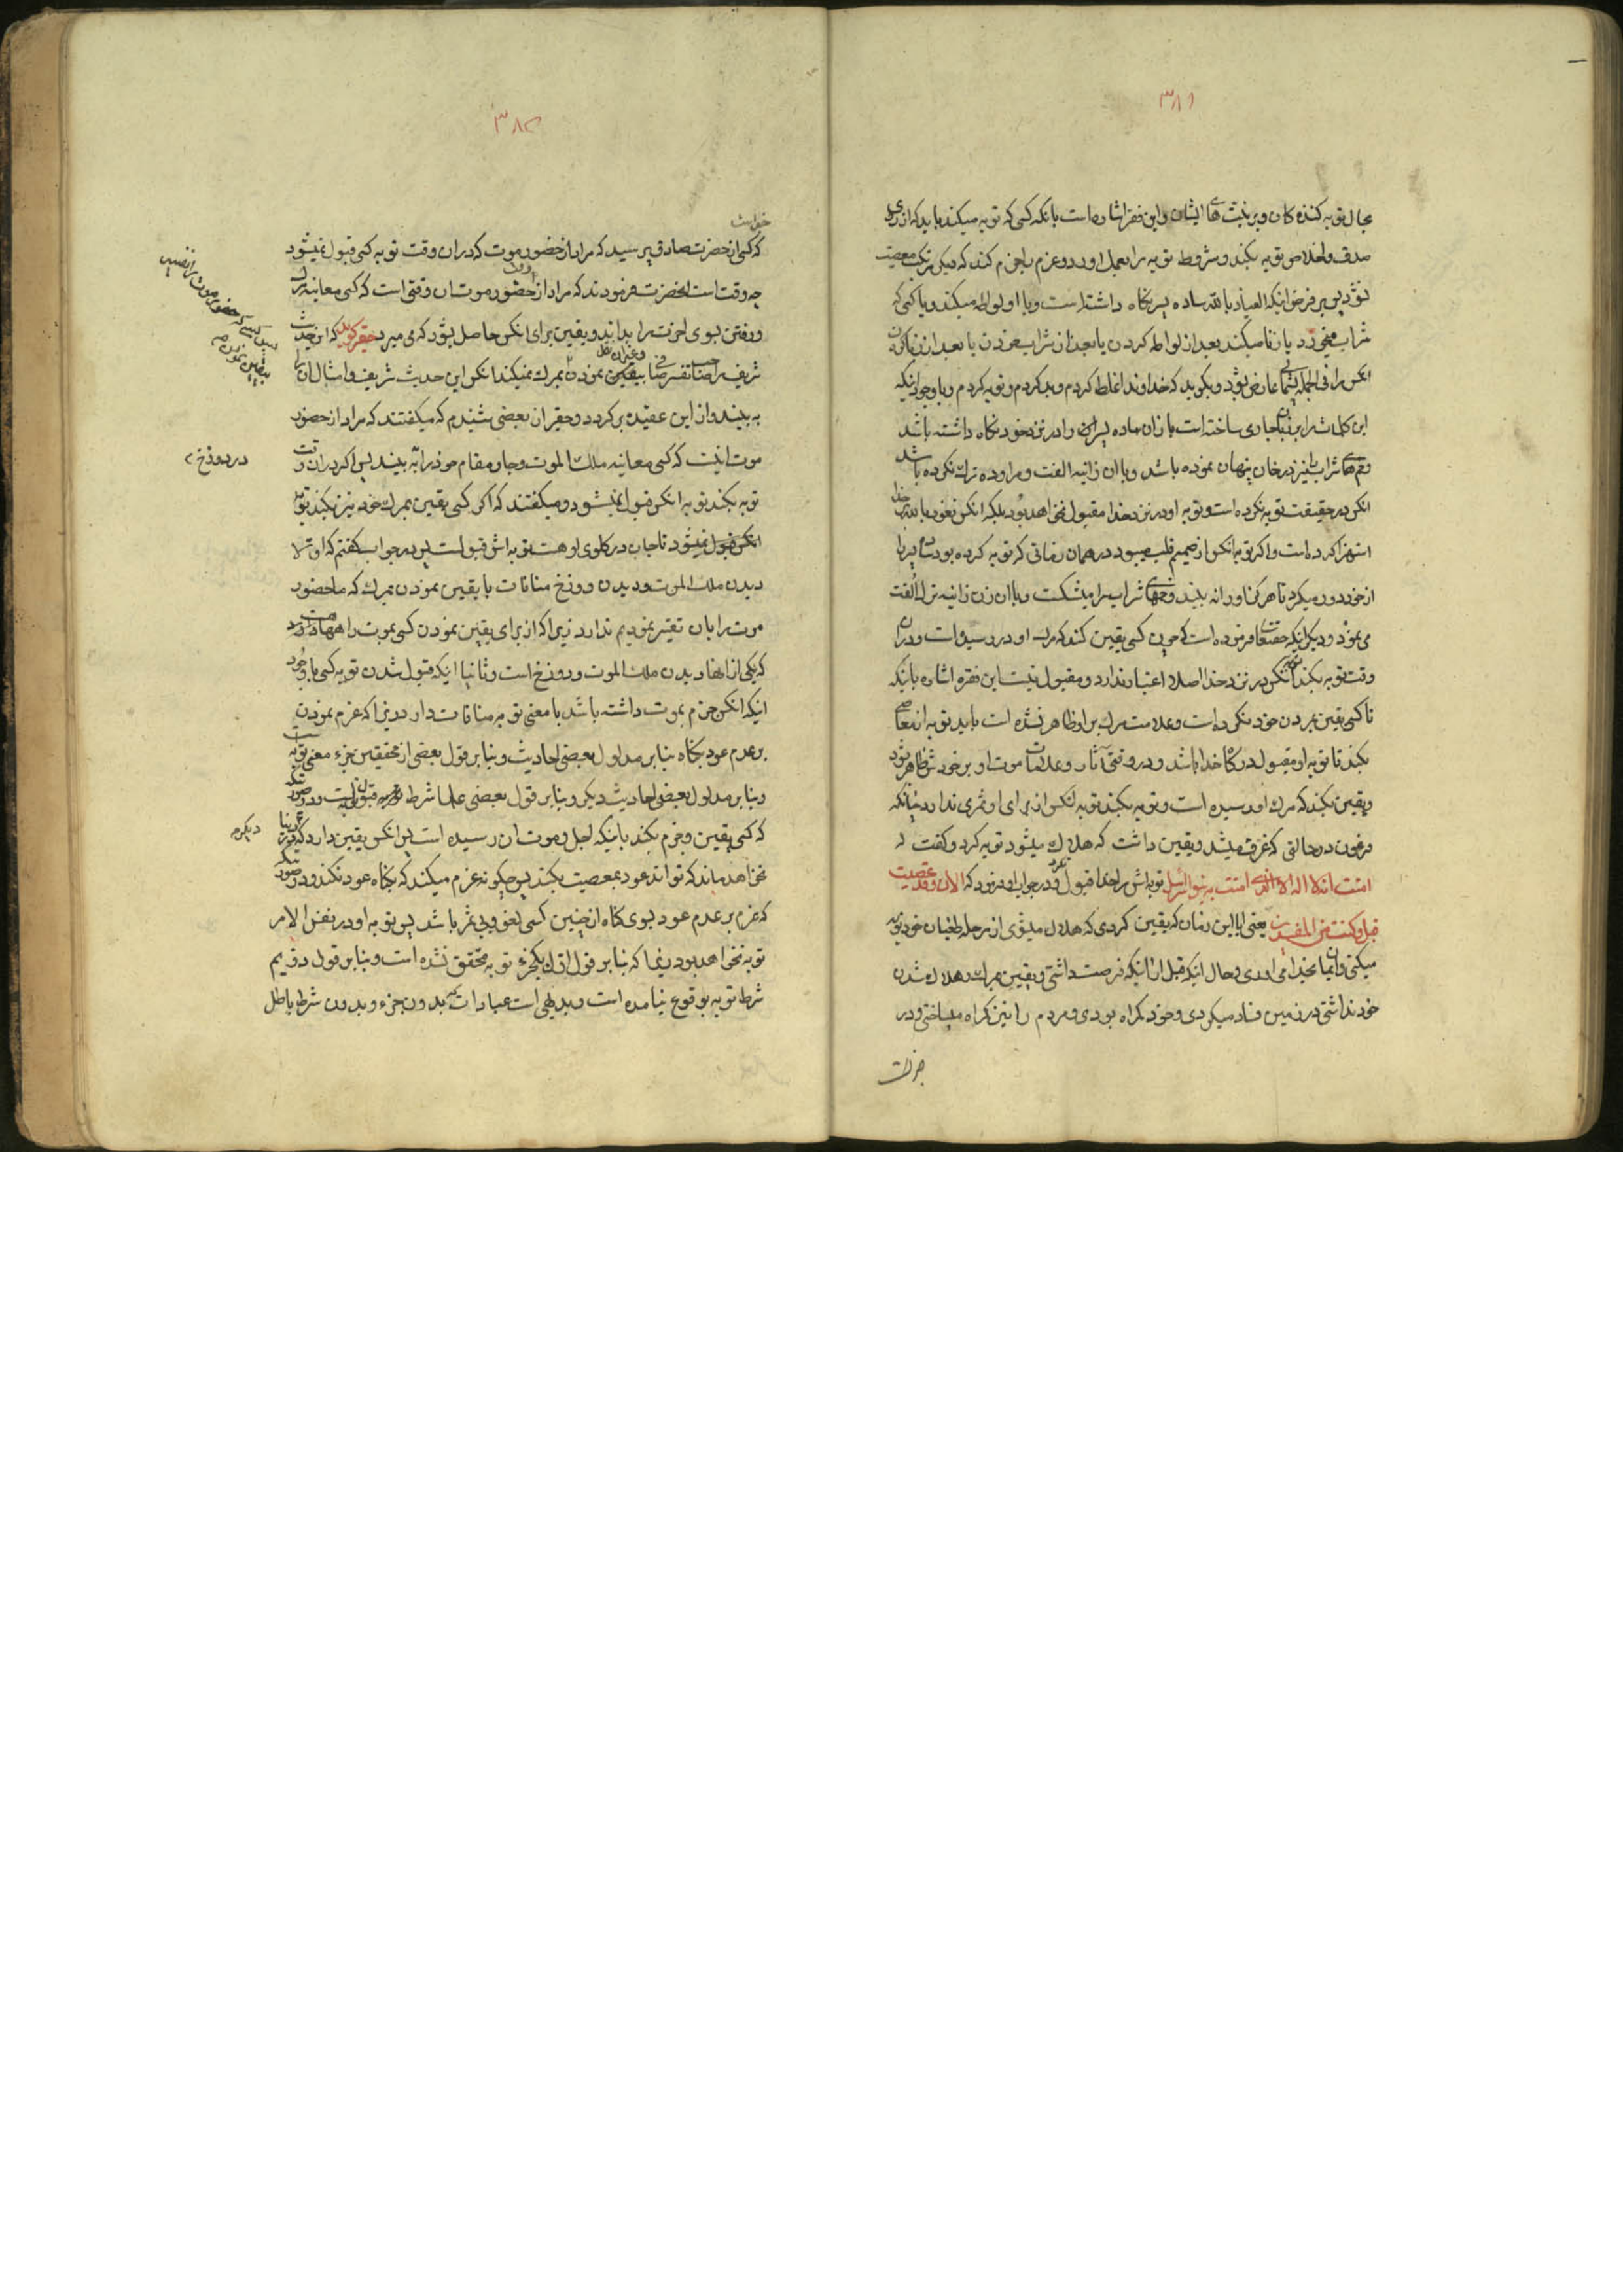 ۳۸۱
بحال توبه کننده کان و بر نیت های ایشان و این فقره اشاره است بانکه کسی که توبه میکند باید که از روی
صدق و اخلاص توبه بکند و شروط توبه را بعمل اورد و عزم بالجزم کند که دیگر مرتکب معصیت
نشود پس بر فرض اینکه العیاذ بالله ساده پسر نکاه داشته است و با او لواطه میکند و یا کسی که
شراب میخورد یا زنا میکند بعد از لواطه کردن یا بعد از شراب خوردن یا بعد از زنا کردن
انکس را فی الجمله پشیمانی عارض بشود و بکوید که خداوندا غلط کردم و بد کردم و توبه کردم و با وجود اینکه
این کلمات را بر زبان جاری ساخته است باز ان ساده پسران را در نزد خود نکاه داشته باشد
و خمهای شراب را نیز در خان پنهان نموده باشد و با ان زانیه الفت و مراوده ترک نکرده باشد
انکس در حقیقت توبه نکرده است و توبه او در نزد خدا مقبول نخواهد بود بلکه انکس نعوذ بالله بخدا
استهزا کرده است و اکر توبه انکس از صمیم قلب میبود در همان زمانی که توبه کرده بود ساده پسر را
از خود دور میکرد تا هرکز او را نه بیند و خمهای شراب را میشکست و با ان زن زانیه ترک الفت
می نمود و دیکر اینکه حقتعالی فرموده است که چون کسی یقین کند که مرک او در رسیده است و در ان
وقت توبه بکند توبه انکس در نزد خدا اصلا اعتبار ندارد و مقبول نیست این فقره اشاره بانکه
تا کسی یقین بمردن خود نکرده است و علامت مرک بر او ظاهر نشده است باید توبه از معاصی
بکند تا توبه او مقبول درکاه خدا باشد و در وقتی که آثار و علامات موت او بر خودش ظاهر شود
و یقین بکند که مرک او رسیده است و توبه بکند توبه انکس از برای او ثمری ندارد چنانکه
فرعون در حالتی که غرق میشد و یقین داشت که هلاک میشود توبه کرد و کفت
امنت انه لا اله الا الذی امنت به بنو اسرائیل توبه اش را خدا قبول نکرد و در جواب او فرمود که الان و قد عصیت
قبل و کنت من المفسدین یعنی ایا این زمان که یقین کردی که هلاک میشوی از مرحله طغیان خود توبه
میکنی و ایمان بخدا می اوری و حال اینکه قبل از اینکه فرصت داشتی و یقین بمرک و هلاک شدن
خود نداشتی در زمین فساد میکردی و خود کمراه بودی و مردم را نیز کمراه میساختی و در
۳۸۲
که کسی از حضرت صادق پرسید که مراد از حضور موت که در ان وقت توبه کسی قبول نمیشود
چه وقت است انحضرت فرمودند که مراد از حضور موت ان وقتی است که کسی معاینه مرک
و رفتن بسوی اخرت را بداند و یقین برای انکس حاصل بشود که می میرد حقیر کوید که این حدیث
شریف صراحتا تفسیر بیقین نمودن بمرک میکند انکس این حدیث شریف و امثال ان را
به بیند و از این عقیده برکردد و حقیر از بعضی شنیدم که میکفتند که مراد از حضور
موت اینست که کسی معاینه ملک الموت و جان مقام خود را به بیند پس اکر در ان وقت
در دوزخ
توبه بکند توبه انکس قبول نمیشود و میکفتند که اکر کسی یقین بمرک خود نیز بکند توبه
انکس قبول میشود تا جان در کلوی او هست توبه اش قبول است پس در جواب کفتم که اولا
دیدن ملک الموت و دیدن دوزخ منافات با یقین نمودن بمرک که ما حضور
موت را بان تفسیر نمودیم ندارد زیرا که از برای یقین نمودن کسی بموت راهها هست
که یکی از انها دیدن ملک الموت و دوزخ است و ثانیا اینکه قبول شدن توبه کسی با وجود
اینکه انکس جزم بموت داشته باشد با معنی توبه منافات دارد زیرا که عزم نمودن
بر عدم عود بکناه بنا بر مدلول بعضی احادیث و بنا بر قول بعضی از محققین جزء معنی توبه است
و بنا بر مدلول بعضی احادیث دیکر و بنا بر قول بعضی علما شرط توبه است و در صورتیکه
که کسی یقین و جزم بکند باینکه اجل و موت ان رسیده است پس انکس یقین دارد که در دنیا
دیکر
نخواهد ماند که تواند عود بمعصیت بکند پس چکونه عزم میکند که بکناه عود نکند و در صورتیکه
که عزم بر عدم عود بسوی کناه از چنین کسی لغو و بی ثمر باشد پس توبه او در نفس الامر
توبه نخواهد بود زیرا که بنا بر قول اول یکجزء توبه محقق نشده است و بنا بر قول دویم
شرط توبه بوقوع نیامده است و بدیهی است که عبادات بدون جزء و بدون شرط باطل